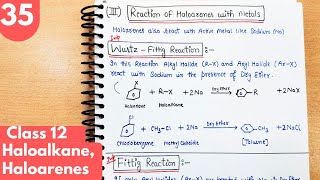 35
(III) Reaction of Haloarenes with Metals
Haloarenes also React with Active Metal like Sodium (Na)
Wurtz - Fittig Reaction :-
In this Reaction Alkyl Halide (R-X) and Aryl Halide (Ar-X)
react with Sodium in the presence of Dry Ether.
X + R-X + 2Na Dry Ether R + 2NaX
Haloarene Haloalkane
Cl + CH3-Cl + 2Na Dry Ether CH3 + 2NaCl
Chlorobenzene Methyl Chloride (Toluene)
Fittig Reaction :-
Class 12
Haloalkane,
Haloarenes